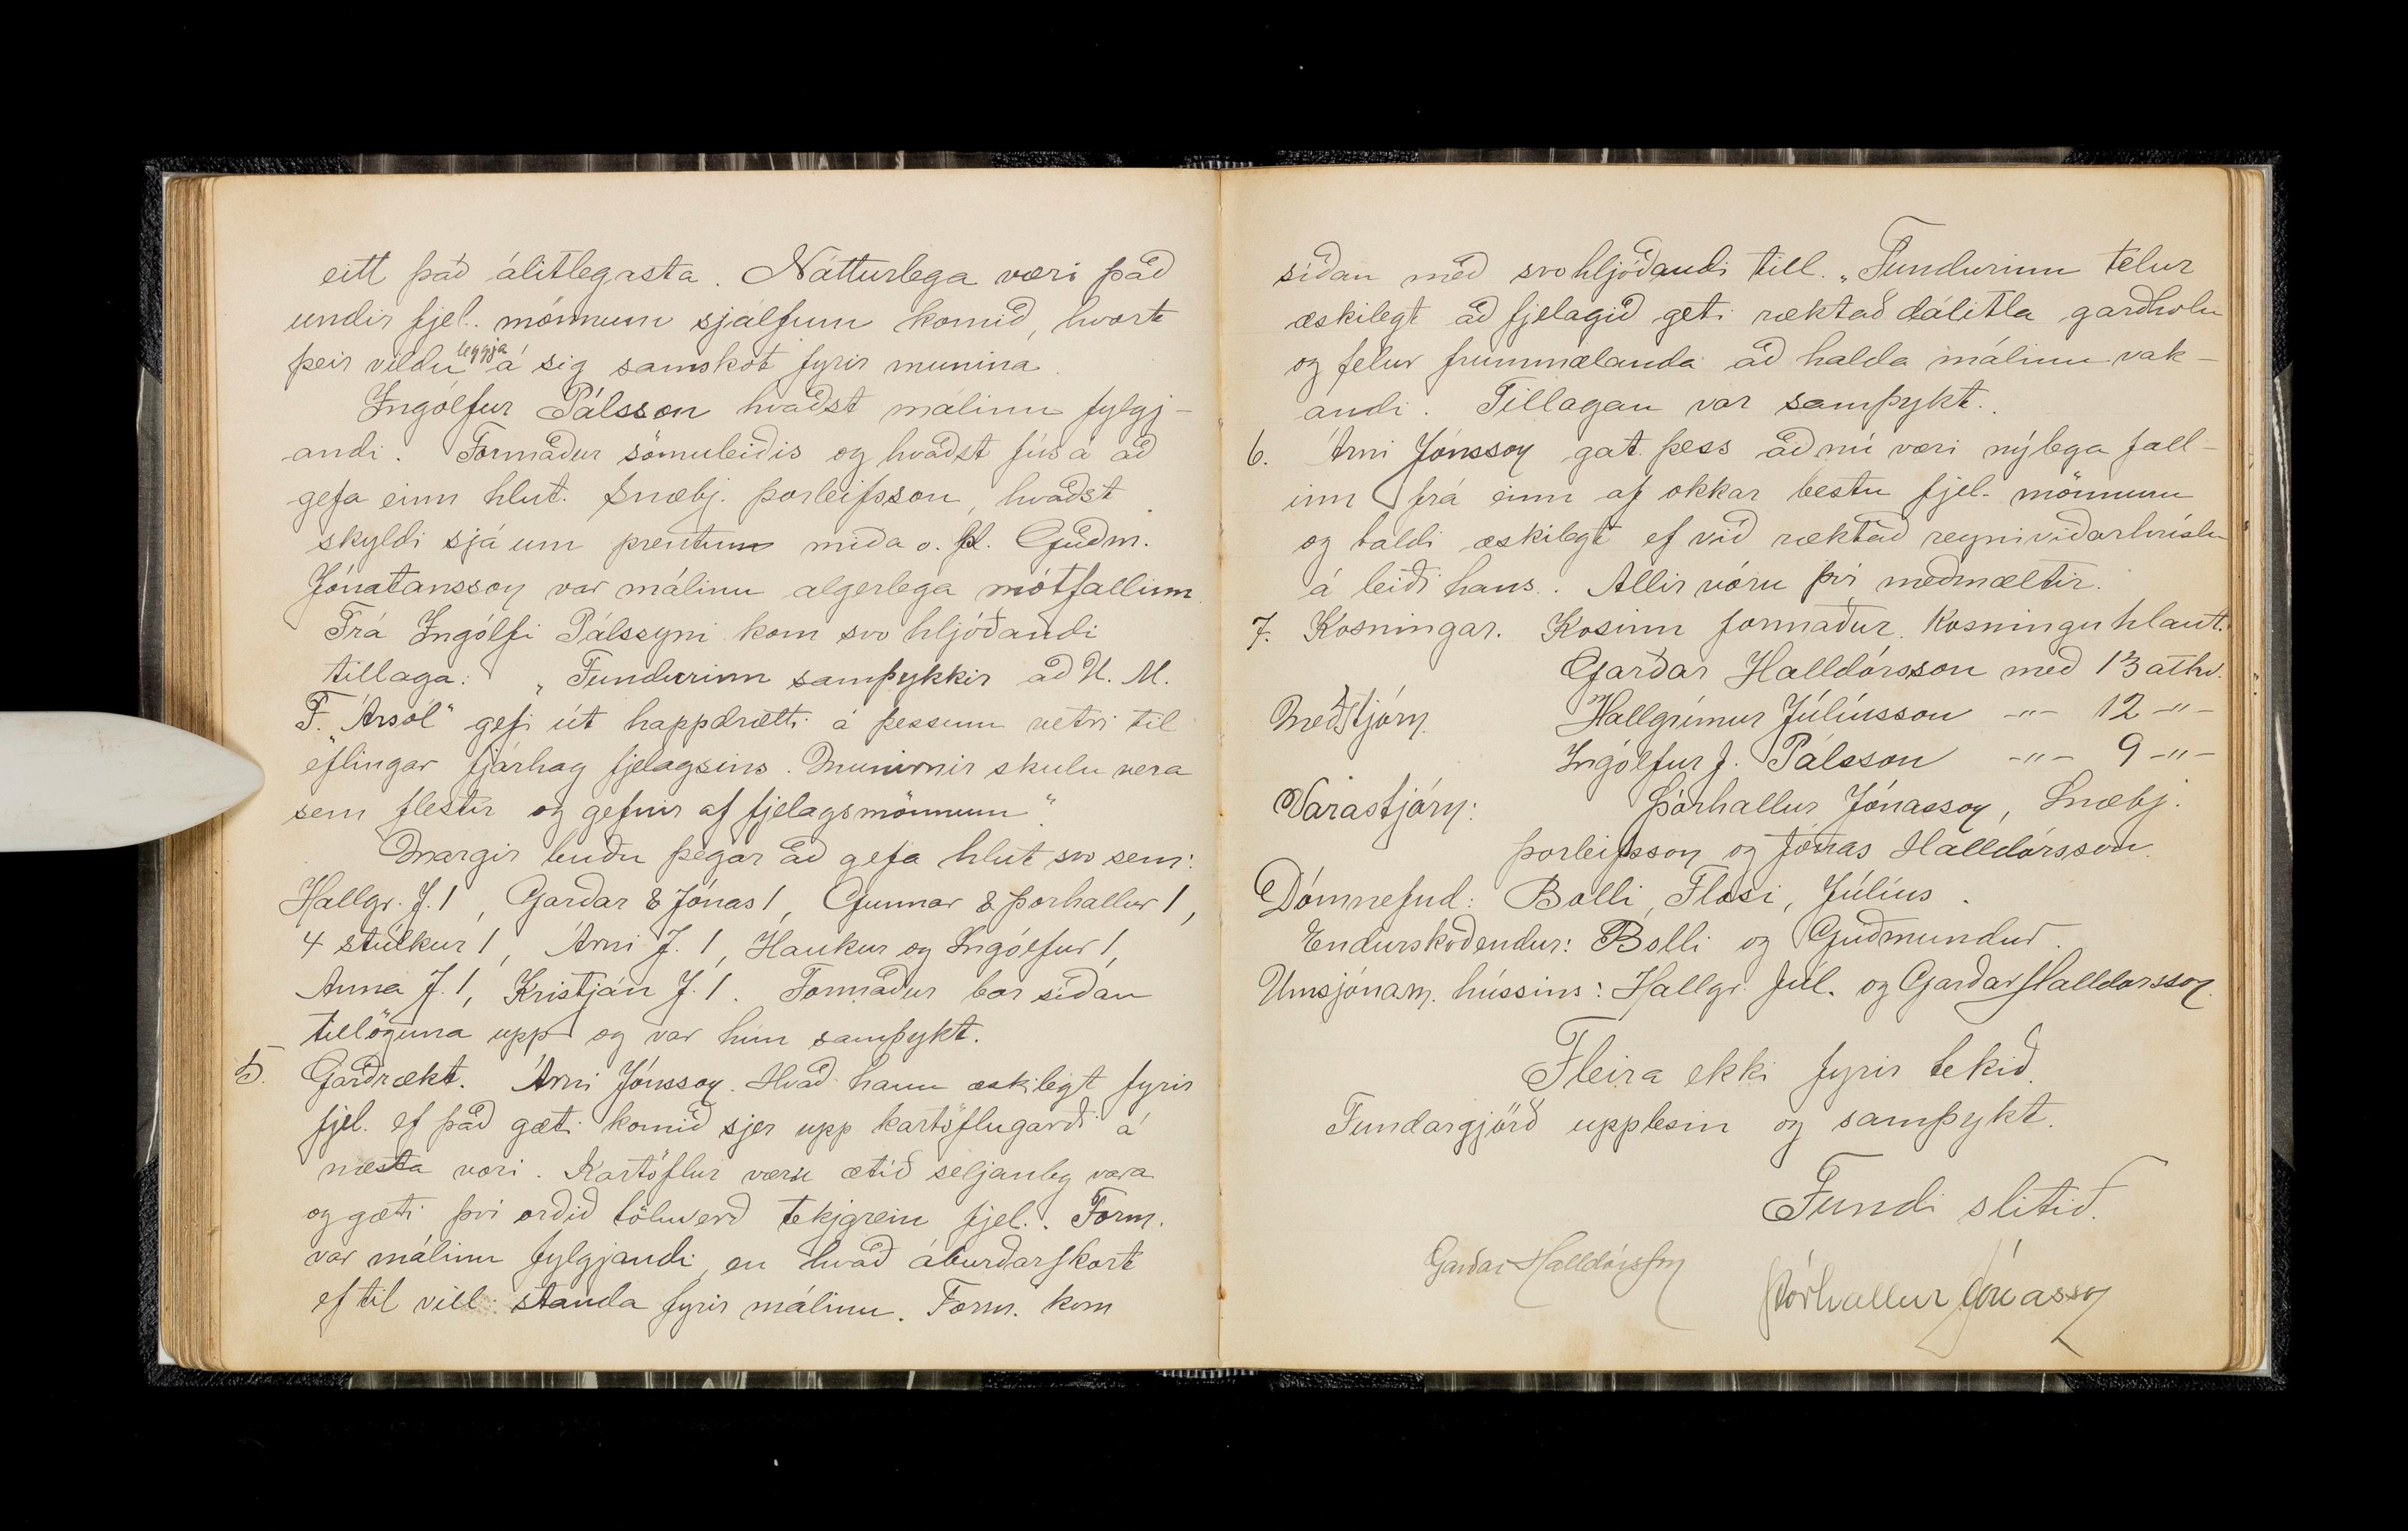 eitt það álitlegasta. Nátturlega væri það
undir fjel. mönnum sjálfum komið, hvort
þeir vildu leggja á sig samskot fyrir munina.
Ingólfur Pálsson hvaðst málinu fylgj-
andi. Formaður sömuleiðis og hvaðst fús á að
gefa einn hlut. Snæbj. Þorleifsson, hvaðst
skyldi sjá um prentun miða o. fl. Guðm.
Jónatansson var málinu algerlega mótfallinn.
Frá Ingólfi Pálssyni kom svo hljóðandi
tillaga: „Fundurinn samþykkir að U. M.
F. „Ársól" gefi út happdrætti á þessum vetri til
eflingar fjárhag fjelagsins. Munirnir skulu vera
sem flestir og gefnir af fjelagsmönnum".
Margir buðu þegar að gefa hlut svo sem:
Hallgr. J. 1, Garðar & Jónas 1, Gunnar & Þorhallur 1,
4 stúlkur 1, Árni J. 1, Haukur og Ingólfur 1,
Anna J. 1, Kristján J. 1. Formaður bar síðan
tillöguna upp og var hún samþykt.
5. Garðrækt. Árni Jónsson. Hvað hann æskilegt fyrir
fjel. ef það gæti komið sjer upp kartöflugarði á
næsta vori. Kartöflur væru ætíð seljanleg vara
og gæti því orðið tölverð tekjgrein fjel.. Form.
var málinu fylgjandi, en hvað áburðarskort
ef til vill standa fyrir málinu. Form. kom
síðan með svohljóðandi till. „Fundurinn telur
æskilegt að fjelagið geti ræktað dálitla garðholu
og felur frummælanda að halda málinu vak-
andi. Tillagan var samþykt..
6. Árni Jónsson gat þess að nú væri nýlega fall-
inn frá einn af okkar bestu fjel. mönnum
og taldi æskilegt ef við ræktað reyniviðarhríslu
á leiði hans. Allir vóru því meðmæltir.
7. Kosningar. Kosinn formaður. Kosningu hlaut.
Garðar Halldórsson með 13 atkv.
Meðstjórn. Hallgrímur Júlíusson -"- 12 -"-
Ingólfur J. Pálsson -"- 9 -"-
Varastjórn: Þórhallur Jónasson, Snæbj.
Þorleifsson og Jónas Halldórsson.
Dómnefnd: Bolli, Flosi, Júlíus.
Endurskoðendur: Bolli og Guðmundur.
Umsjónam. hússins: Hallgr. Júl. og Garðar Halldorsson.
Fleira ekki fyrir tekið.
Fundargjörð upplesin og samþykt.
Fundi slitið.
Garðar Halldórsson
Þórhallur Jónasson